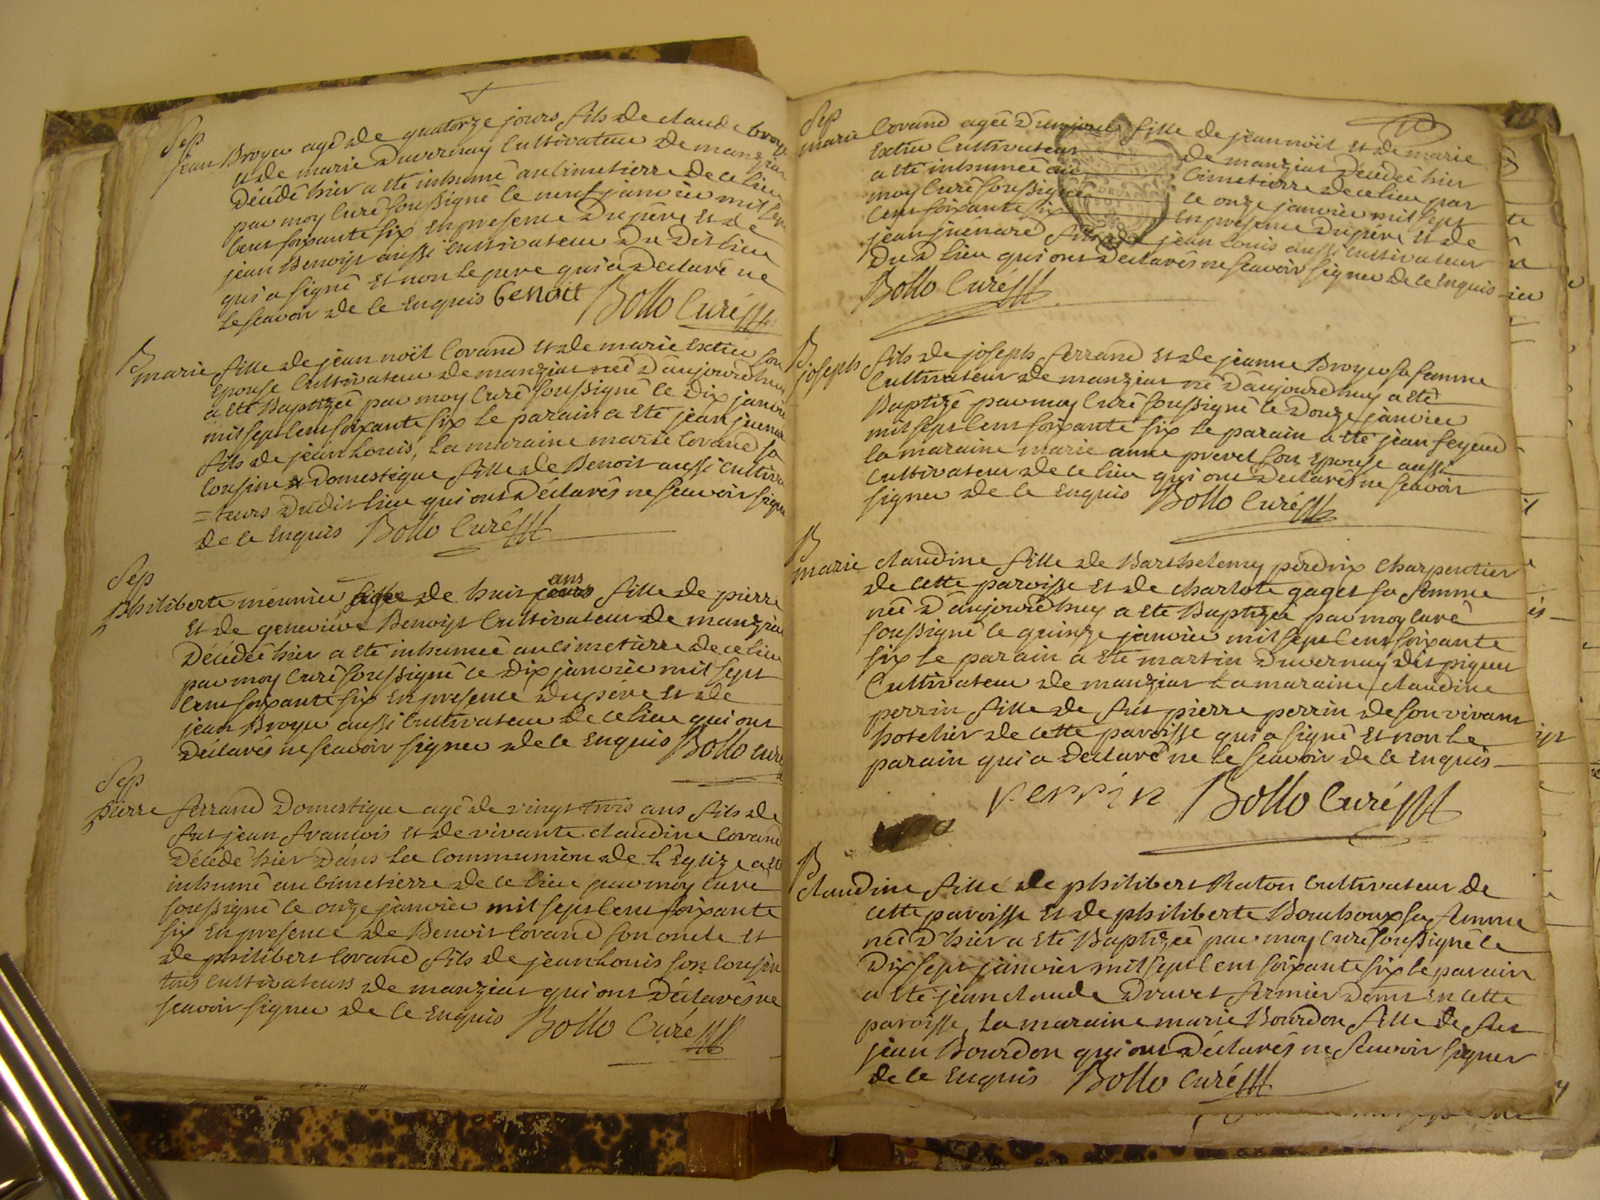 Sep
jean Broyer agé de quatorze jours fils de claude broyer
et de marie Duvernay Cultivateur de manziat
Décédé hier a été inhumé au Cimetierre de ce lieu
par moy Curé soussigné le neuf janvier mil sept
Cent soixante six En presence Du père Et de
jean Benoist aussi Cultivateur Du Dit lieu
qui a signé Et non le pere qui a Déclaré ne
le scavoir de ce Enquis Genoist Bollo Curé
B
marie fille de jean noël Corand Et de marie Extier son
Epouse Cultivateur de manziat née D'aujourd'huy
a été Baptizée par moy Curé soussigné le Dix janvier
mil sept Cent soixante six le parain a été jean juenard
fils de jean Louis, La maraine marie Corand sa
Cousine Domestique fille de Benoit aussi Cultiva
=teurs Dudit lieu qui ont Déclarés ne scavoir signer
de ce Enquis Bollo Curé
Sep
philiberte meunier agée de huit ans fille de pierre
Et de genevieve Benoist Cultivateur de manziat
Décédée hier a été inhumée au Cimetierre de ce lieu
par moy Curé soussigné le Dix janvier mil sept
Cent soixante six En presence du père Et de
jean Broyer aussi Cultivateur de ce lieu qui ont
Déclarés ne scavoir signer de ce Enquis Bollo curé
Sep
pierre ferrand Domestique agé de vingt trois ans fils de
fut jean francois Et de vivante claudine Corand
Décédé hier Dans La Communion de L'Eglize a été
inhumé au Cimetierre de ce lieu par moy Curé
soussigné le onze janvier mil sept Cent soixante
six En presence de Benoit Corand son oncle Et
de philibert Corand fils de jean Louis son Cousin
tous Cultivateurs de manziat qui ont Déclarés ne
scavoir signer de ce Enquis Bollo Curé
Sep
marie Corand agée D'un jour fille de jean noël Et de marie
Extier Cultivateur de manziat Décédée hier
a été inhumée au Cimetierre de ce lieu par
moy Curé soussigné le onze janvier mil sept
Cent soixante six En presence Du père Et de
jean juenard fils de jean Louis aussi Cultivateur
Du D lieu qui ont Déclarés ne scavoir signer de ce Enquis
Bollo Curé
B
joseph fils de joseph ferrand Et de jeanne Broyer sa femme
Cultivateur de manziat né D'aujourd'huy a été
Baptizé par moy Curé soussigné le Douze janvier
mil sept Cent soixante six le parain a été jean feyeud
la maraine marie anne prevel son Epouse aussi
Cultivateur de ce lieu qui ont Déclarés ne scavoir
signer de ce Enquis Bollo Curé
B
marie claudine fille de Barthelemy perdrix Charpentier
de cette paroisse Et de charlote gaget sa femme
née D'aujourd'huy a été Baptizée par moy curé
soussigné le quinze janvier mil sept cent soixante
six le parain a été martin Duvernay Dit piquet
Cultivateur de manziat La maraine claudine
perrin fille de fut pierre perrin de son vivant
hotelier de cette paroisse qui a signé Et non le
parain qui a Déclaré ne le scavoir de ce Enquis
perrin Bollo Curé
B
claudine fille de philibert Raton Cultivateur de
cette paroisse Et de philiberte Bourboux sa femme
née D'hier a été Baptizée par moy Curé soussigné le
Dix sept janvier mil sept Cent soixante six le parain
a été jean claude Druvet fermier Demt En cette
paroisse, La maraine marie Bourdon fille de fut
jean Bourdon qui ont Déclarés ne scavoir signer
de ce Enquis Bollo Curé